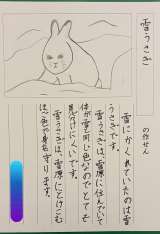 雪うさぎ
の作せん
雪にかくれていたのは雪
うさぎです。
雪うさぎは、雪原に住んでいて
体が雪と同じ色なのでとても
見分けにくいです。
雪うさぎは、雪原にとけこむ
は〜色や身を守ります。